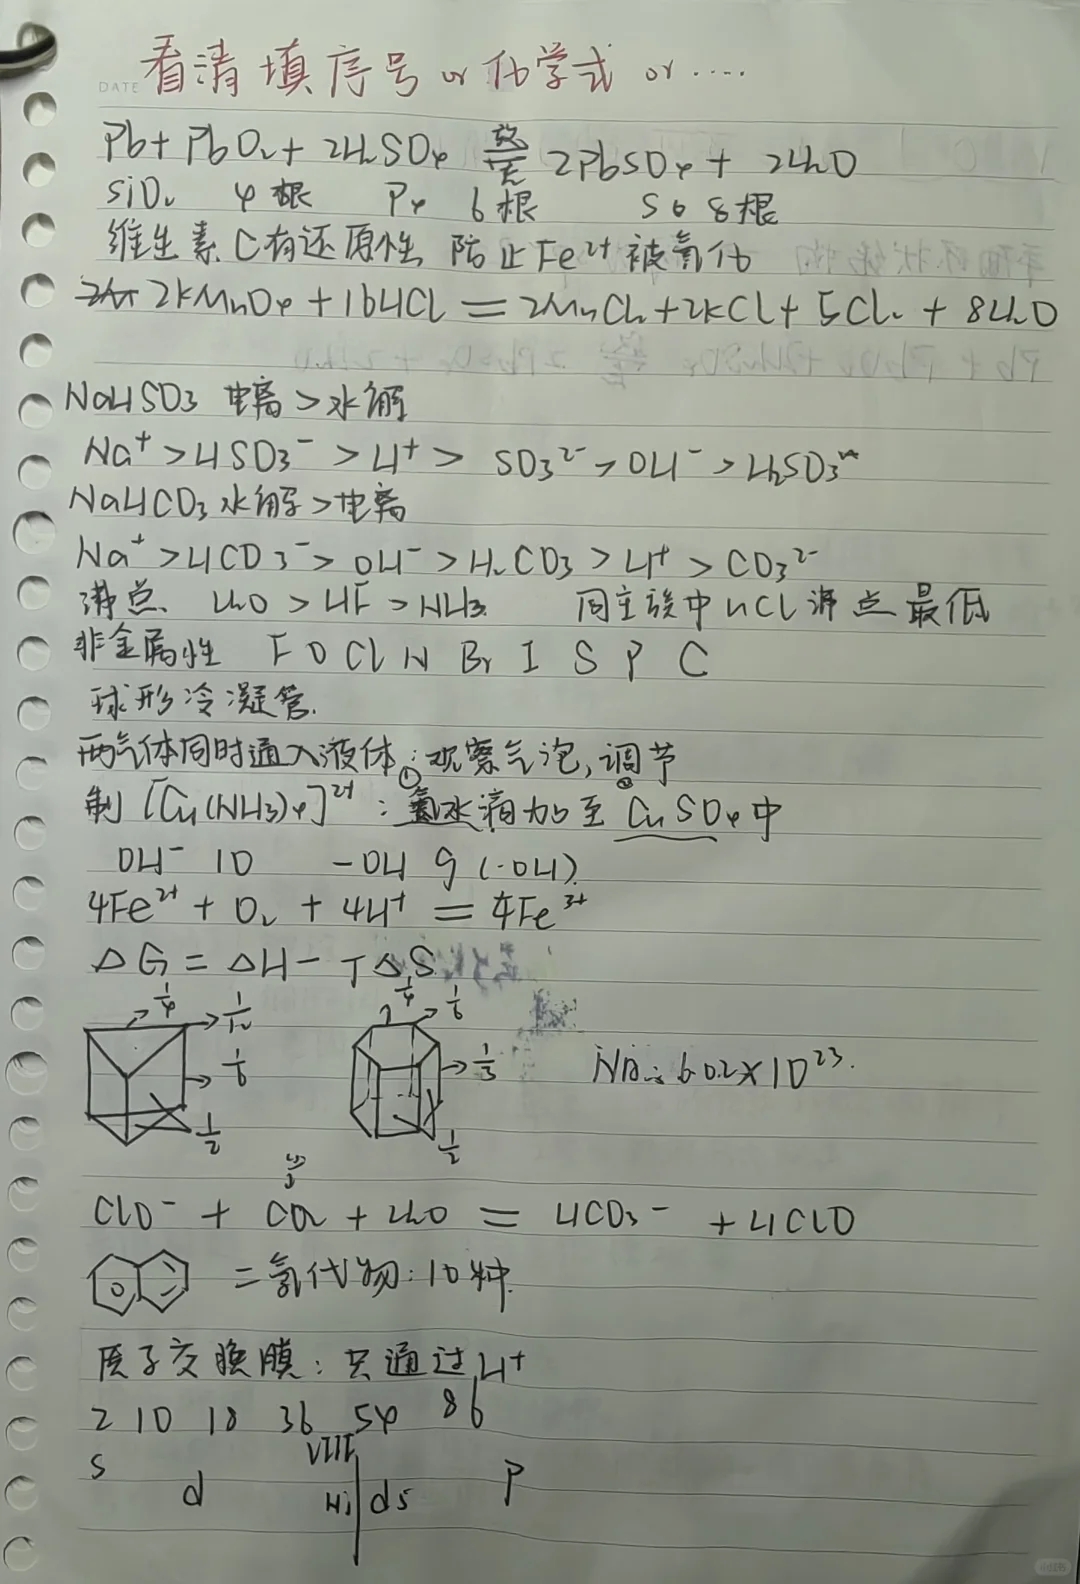 DATE 看清填序号 or 化学式 or ....
Pb + PbO₂ + 2H₂SO₄ 放电 2PbSO₄ + 2H₂O
SiO₂ 4根 P₄ 6根 S8 8根
维生素C有还原性 防止Fe²⁺被氧化
2KMnO₄ + 16HCl = 2MnCl₂ + 2KCl + 5Cl₂ + 8H₂O
NaHSO3 电离 > 水解
Na⁺ > HSO3⁻ > H⁺ > SO3²⁻ > OH⁻ > H₂SO3
NaHCO3 水解 > 电离
Na⁺ > HCO3⁻ > OH⁻ > H₂CO3 > H⁺ > CO3²⁻
沸点. H₂O > HF > NH3. 同主族中HCl沸点最低
非金属性 F O Cl N Br I S P C
球形冷凝管.
两气体同时通入液体:①观察气泡,②调节
制[Cu(NH3)₄]²⁺:氨水滴加至CuSO₄中
OH⁻ 10 -OH 9 (·OH).
4Fe²⁺ + O₂ + 4H⁺ = 4Fe³⁺
ΔG = ΔH - TΔS
1/4 1/12 1/4 1/6
1/6 1/3 NA = 6.02×10²³.
1/2 1/2
ClO⁻ + CO₂ + H₂O = HCO3⁻ + HClO
二氯代物:10种.
质子交换膜:只通过H⁺
2 10 18 36 54 86
VIII
s d Ni ds p